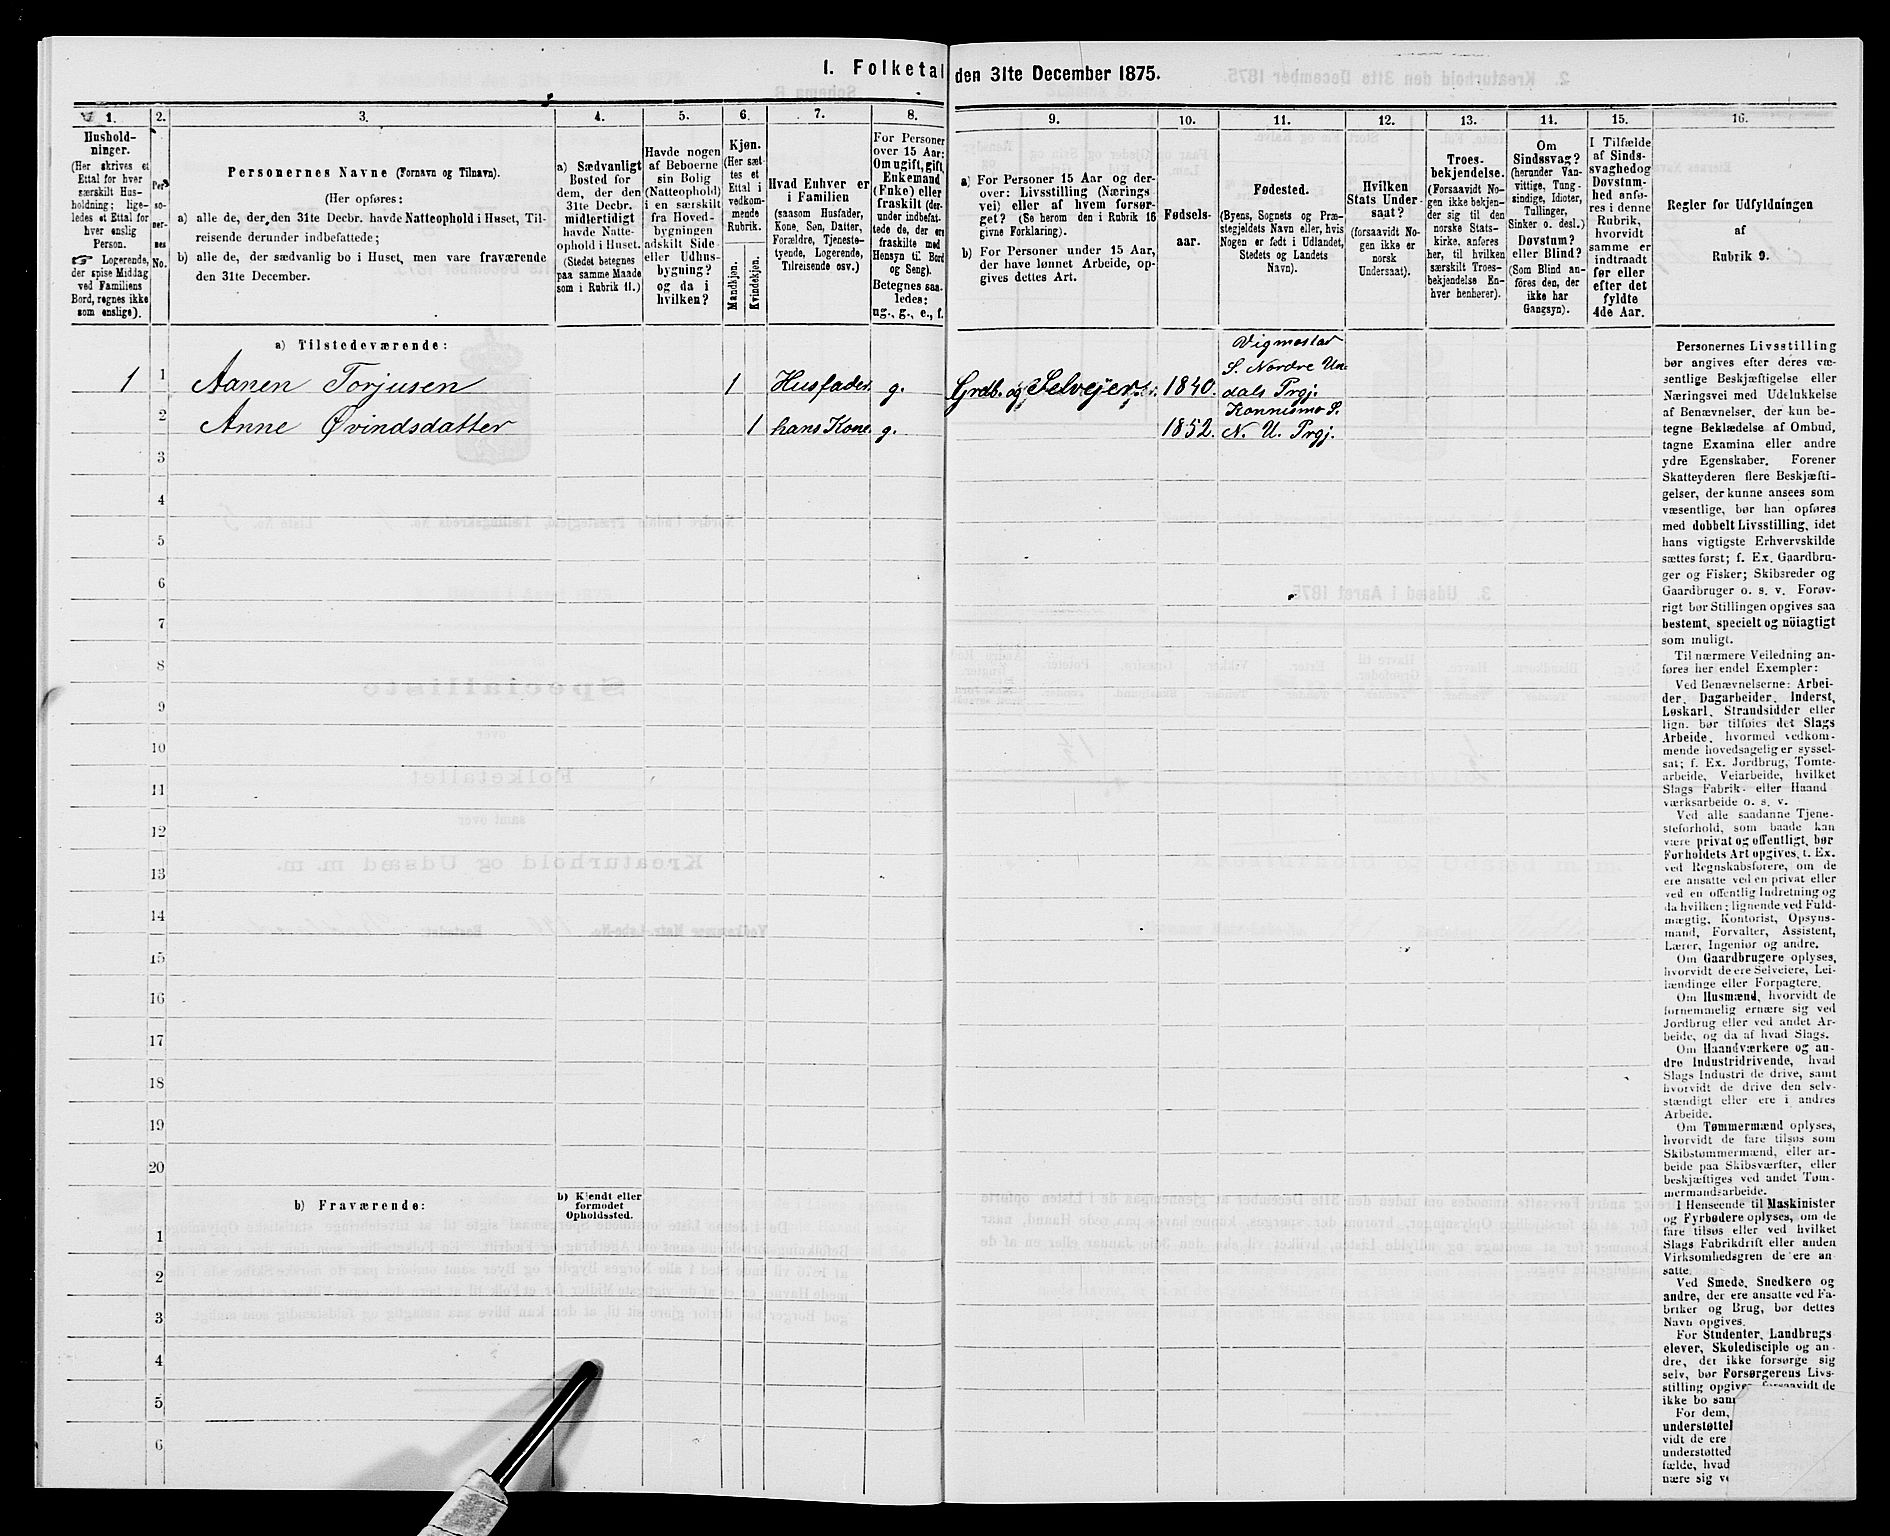 1. Folketal den 31te December 1875.
1.
Hushold-
ninger.
(Her skrives et
Ettal for hver
særskilt Hus-
holdning; lige-
ledes et Ettal for
hver enslig
Person.
☞ Logerende,
der spise Middag
ved Familiens
Bord, regnes ikke
som enslige).
2.
Per-
so-
ner-
nes
No.
3.
Personernes Navne (Fornavn og Tilnavn).
(Her opføres:
a) alle de, der den 31te Decbr. havde Natteophold i Huset, Til-
reisende derunder indbefattede;
b) alle de, der sædvanlig bo i Huset, men vare fraværende
den 31te December.
4.
a) Sædvanligt
Bosted for
dem, der den
31te Decbr.
midlertidigt
havde Natte-
ophold i Huset.
(Stedet betegnes
paa samme Maade
som i Rubrik 11.)
5.
Havde nogen
af Beboerne
sin Bolig
(Natteophold)
i en særskilt
fra Hoved-
bygningen
adskilt Side
eller Udhus-
bygning?
og da i
hvilken?
6.
Kjøn.
(Her sæt-
tes et
Ettal i
vedkom-
mende
Rubrik.
Mandkjøn.
Kvindekjøn.
7.
Hvad Enhver er
i Familien
(saasom Husfader,
Kone, Søn, Datter,
Forældre, Tjeneste-
tyende, Logerende,
Tilreisende osv.)
8.
For Personer
over 15 Aar:
Om ugift, gift,
Enkemand
(Enke) eller
fraskilt (der-
under indbefat-
tede de, der ere
fraskilte med
Hensyn til Bord
og Seng).
Betegnes saa-
ledes:
ug., g., e., f.
9.
a) For Personer 15 Aar og der-
over: Livsstilling (Nærings-
vei) eller af hvem forsør-
get? (Se herom den i Rubrik 16
givne Forklaring).
b) For Personer under 15 Aar,
der have lønnet Arbeide, op-
gives dettes Art.
10.
Fødsels-
aar.
11.
Fødested.
(Byens, Sognets og Præ-
stegjeldets Navn eller, hvis
Nogen er født i Udlandet,
Stedets og Landets
Navn).
12.
Hvilken
Stats Under-
saat?
(forsaavidt No-
gen ikke er
norsk
Undersaat).
13.
Troes-
bekjendelse.
(Forsaavidt No-
gen ikke bekjen-
der sig til den
norske Stats-
kirke, anføres
her, til hvilken
særskilt Troes-
bekjendelse En-
hver henhører).
14.
Om
Sindssvag?
(herunder Van-
vittige, Tung-
sindige, Idioter,
Tullinger,
Sinker o. desl.)
Døvstum?
eller Blind?
(Som Blind an-
føres den, der
ikke har
Gangsyn).
15.
I Tilfælde
af Sinds-
svaghed og
Døvstum-
hed anfø-
res i denne
Rubrik,
hvorvidt
samme er
indtraadt
før eller
efter det
fyldte
4de Aar.
16.
Regler for Udfyldningen
af
Rubrik 9.
a) Tilstedeværende:
1 1 Aanen Torjusen 1 Husfader g. Grdb. og Selveier 1840. Vigmostad
S. Nordre Un-
dals Prgj.
2 Anne Øvindsdatter 1 hans Kone g. 1852. Konnismo S.
N. U. Prgj.
3
4
5
6
7
8
9
10
11
12
13
14
15
16
17
18
19
20
b) Fraværende:
b) Kjendt eller
formodet
Opholdssted.
1
2
3
4
5
6
Personernes Livsstilling
bør angives efter deres væ-
sentlige Beskjæftigelse eller
Næringsvei med Udelukkelse
af Benævnelser, der kun be-
tegne Beklædelse af Ombud,
tagne Examina eller andre
ydre Egenskaber. Forener
Skatteyderen flere Beskjæfti-
gelser, der kunne ansees som
væsentlige, bør han opføres
med dobbelt Livsstilling, idet
hans vigtigste Erhvervskilde
sættes først; f. Ex. Gaardbru-
ger og Fisker; Skibsreder og
Gaardbruger o. s. v. Forøv-
rigt bør Stillingen opgives saa
bestemt, specielt og nöiagtigt
som muligt.
Til nærmere Veiledning an-
føres her endel Exempler:
Ved Benævnelserne: Arbei-
der, Dagarbeider, Inderst,
Løskarl, Strandsidder eller
lign. bør tilføies det Slags
Arbeide, hvormed vedkom-
mende hovedsagelig er syssel-
sat; f. Ex. Jordbrug, Tomte-
arbeide, Veiarbeide, hvilket
Slags Fabrik- eller Haand-
værksarbeide o. s. v.
Ved alle saadanne Tjene-
steforhold, som baade kan
være privat og offentligt, bør
Forholdets Art opgives, f. Ex.
ved Regnskabsførere, om de
ere ansatte ved en privat eller
ved en offentlig Indretning og
da hvilken; lignende ved Fuld-
mægtig, Kontorist, Opsyns-
mand, Forvalter, Assistent,
Lærer, Ingeniør og andre.
Om Gaardbrugere oplyses,
hvorvidt de ere Selveiere, Lei-
lændinge eller Forpagtere.
Om Husmænd, hvorvidt de
fornemmelig ernære sig ved
Jordbrug eller ved andet Ar-
beide, og da af hvad Slags.
Om Haandværkere og an-
dre Industridrivende, hvad
Slags Industri de drive, samt
hvorvidt de drive den selv-
stændigt eller ere i andres
Arbeide.
Om Tømmermænd oplyses,
hvorvidt de fare tilsøs som
Skibstømmermænd, eller ar-
beide paa Skibsværfter, eller
beskjæftiges ved andet Tøm-
mermandsarbeide.
I Henseende til Maskinister
og Fyrbødere oplyses, om de
fare tilsøs eller ved hvilket
Slags Fabrikdrift eller anden
Virksomhedsgren de ere an-
satte.
Ved Smede, Snedkere og
andre, der ere ansatte ved Fa-
briker og Brug, bør dettes
Navn opgives.
For Studenter, Landbrugs-
elever, Skoledisciple og an-
dre, der ikke forsørge sig
selv, bør Forsørgerens Livs-
stilling opgives forsaavidt de
ikke bo sam
For dem,
understøttel
vidt de ere
understøtted
fælde, hvad
nære sig v